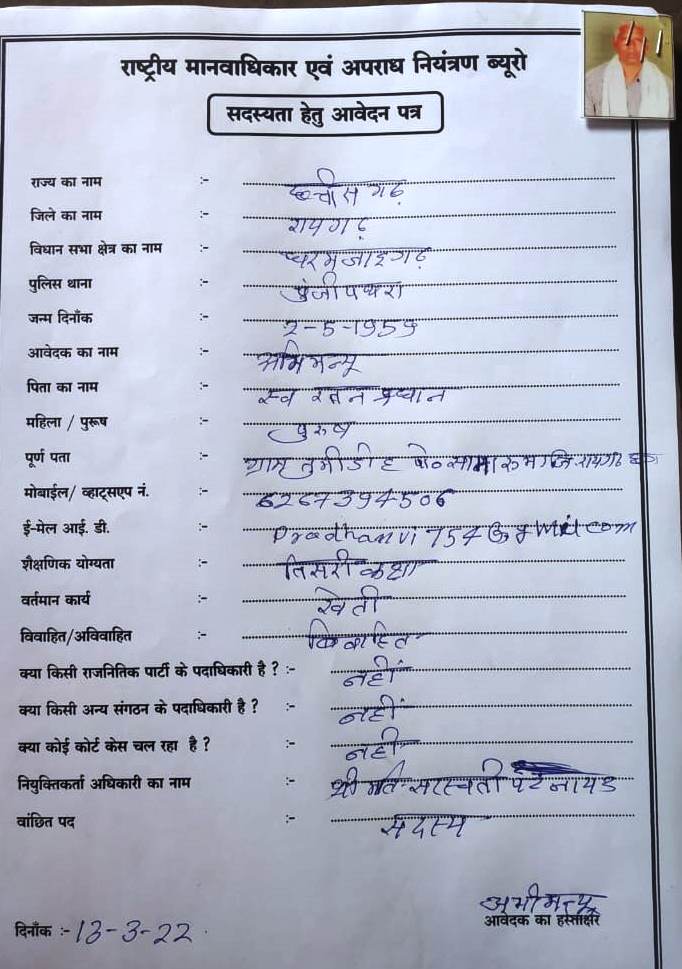 राष्ट्रीय मानवाधिकार एवं अपराध नियंत्रण ब्यूरो
सदस्यता हेतु आवेदन पत्र
राज्य का नाम :- छत्तीसगढ़
जिले का नाम :- रायगढ़
विधान सभा क्षेत्र का नाम :- धरमजाइगढ़
पुलिस थाना :- पुंजीपथरा
जन्म दिनाँक :- 2-5-1959
आवेदक का नाम :- अभिमन्यू
पिता का नाम :- स्व रतन प्रधान
महिला / पुरूष :- पुरुष
पूर्ण पता :- ग्राम तुमीडीह पो० सामारुमा जि. रायगढ़
मोबाईल/ व्हाट्सएप नं. :- 6267394506
ई-मेल आई. डी. :- Pradhanvi754@gmail.com
शैक्षणिक योग्यता :- तिसरी कक्षा
वर्तमान कार्य :- खेती
विवाहित/अविवाहित :- विवाहित
क्या किसी राजनितिक पार्टी के पदाधिकारी है ? :- नहीं
क्या किसी अन्य संगठन के पदाधिकारी है ? :- नहीं
क्या कोई कोर्ट केस चल रहा है ? :- नही
नियुक्तिकर्ता अधिकारी का नाम :- श्री मति सरस्वती
वांछित पद :- सदस्य
अभीमन्यू
आवेदक का हस्ताक्षर
दिनाँक :- 13-3-22